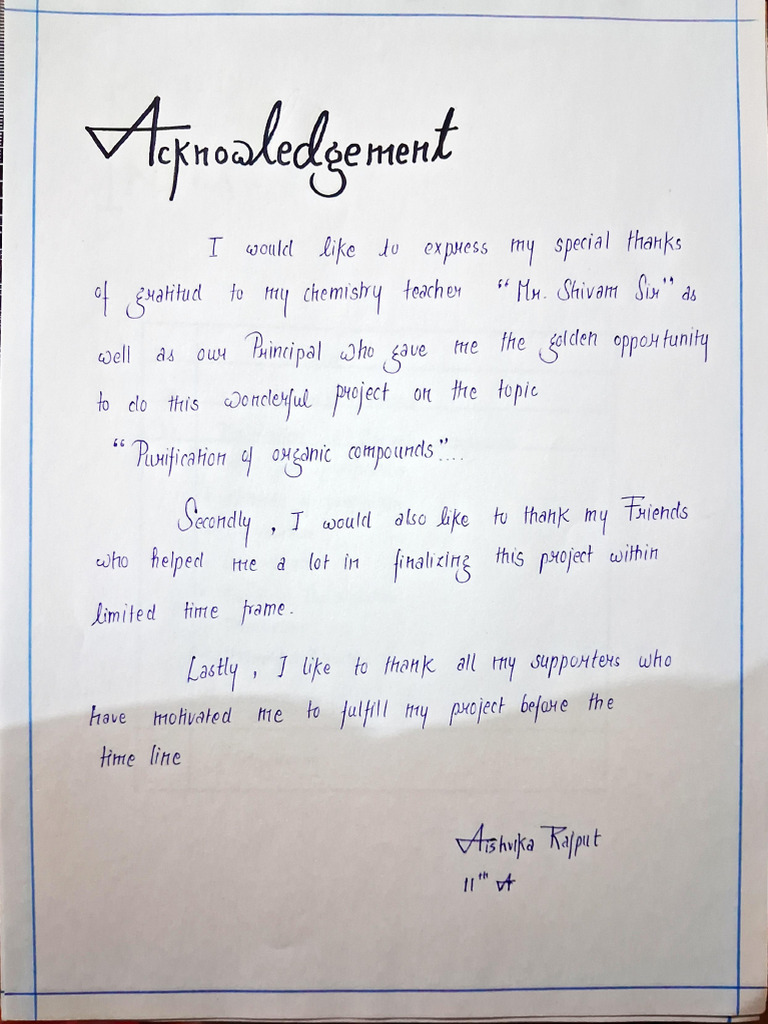 Acknowledgement
I would like to express my special thanks
of gratitud to my chemistry teacher "Mr. Shivam Sir" as
well as our Principal who gave me the golden opportunity
to do this wonderful project on the topic
"Purification of organic compounds"...
Secondly, I would also like to thank my Friends
who helped me a lot in finalizing this project within
limited time frame.
Lastly, I like to thank all my supporters who
have motivated me to fulfill my project before the
time line
Aishvika Rajput
11th A